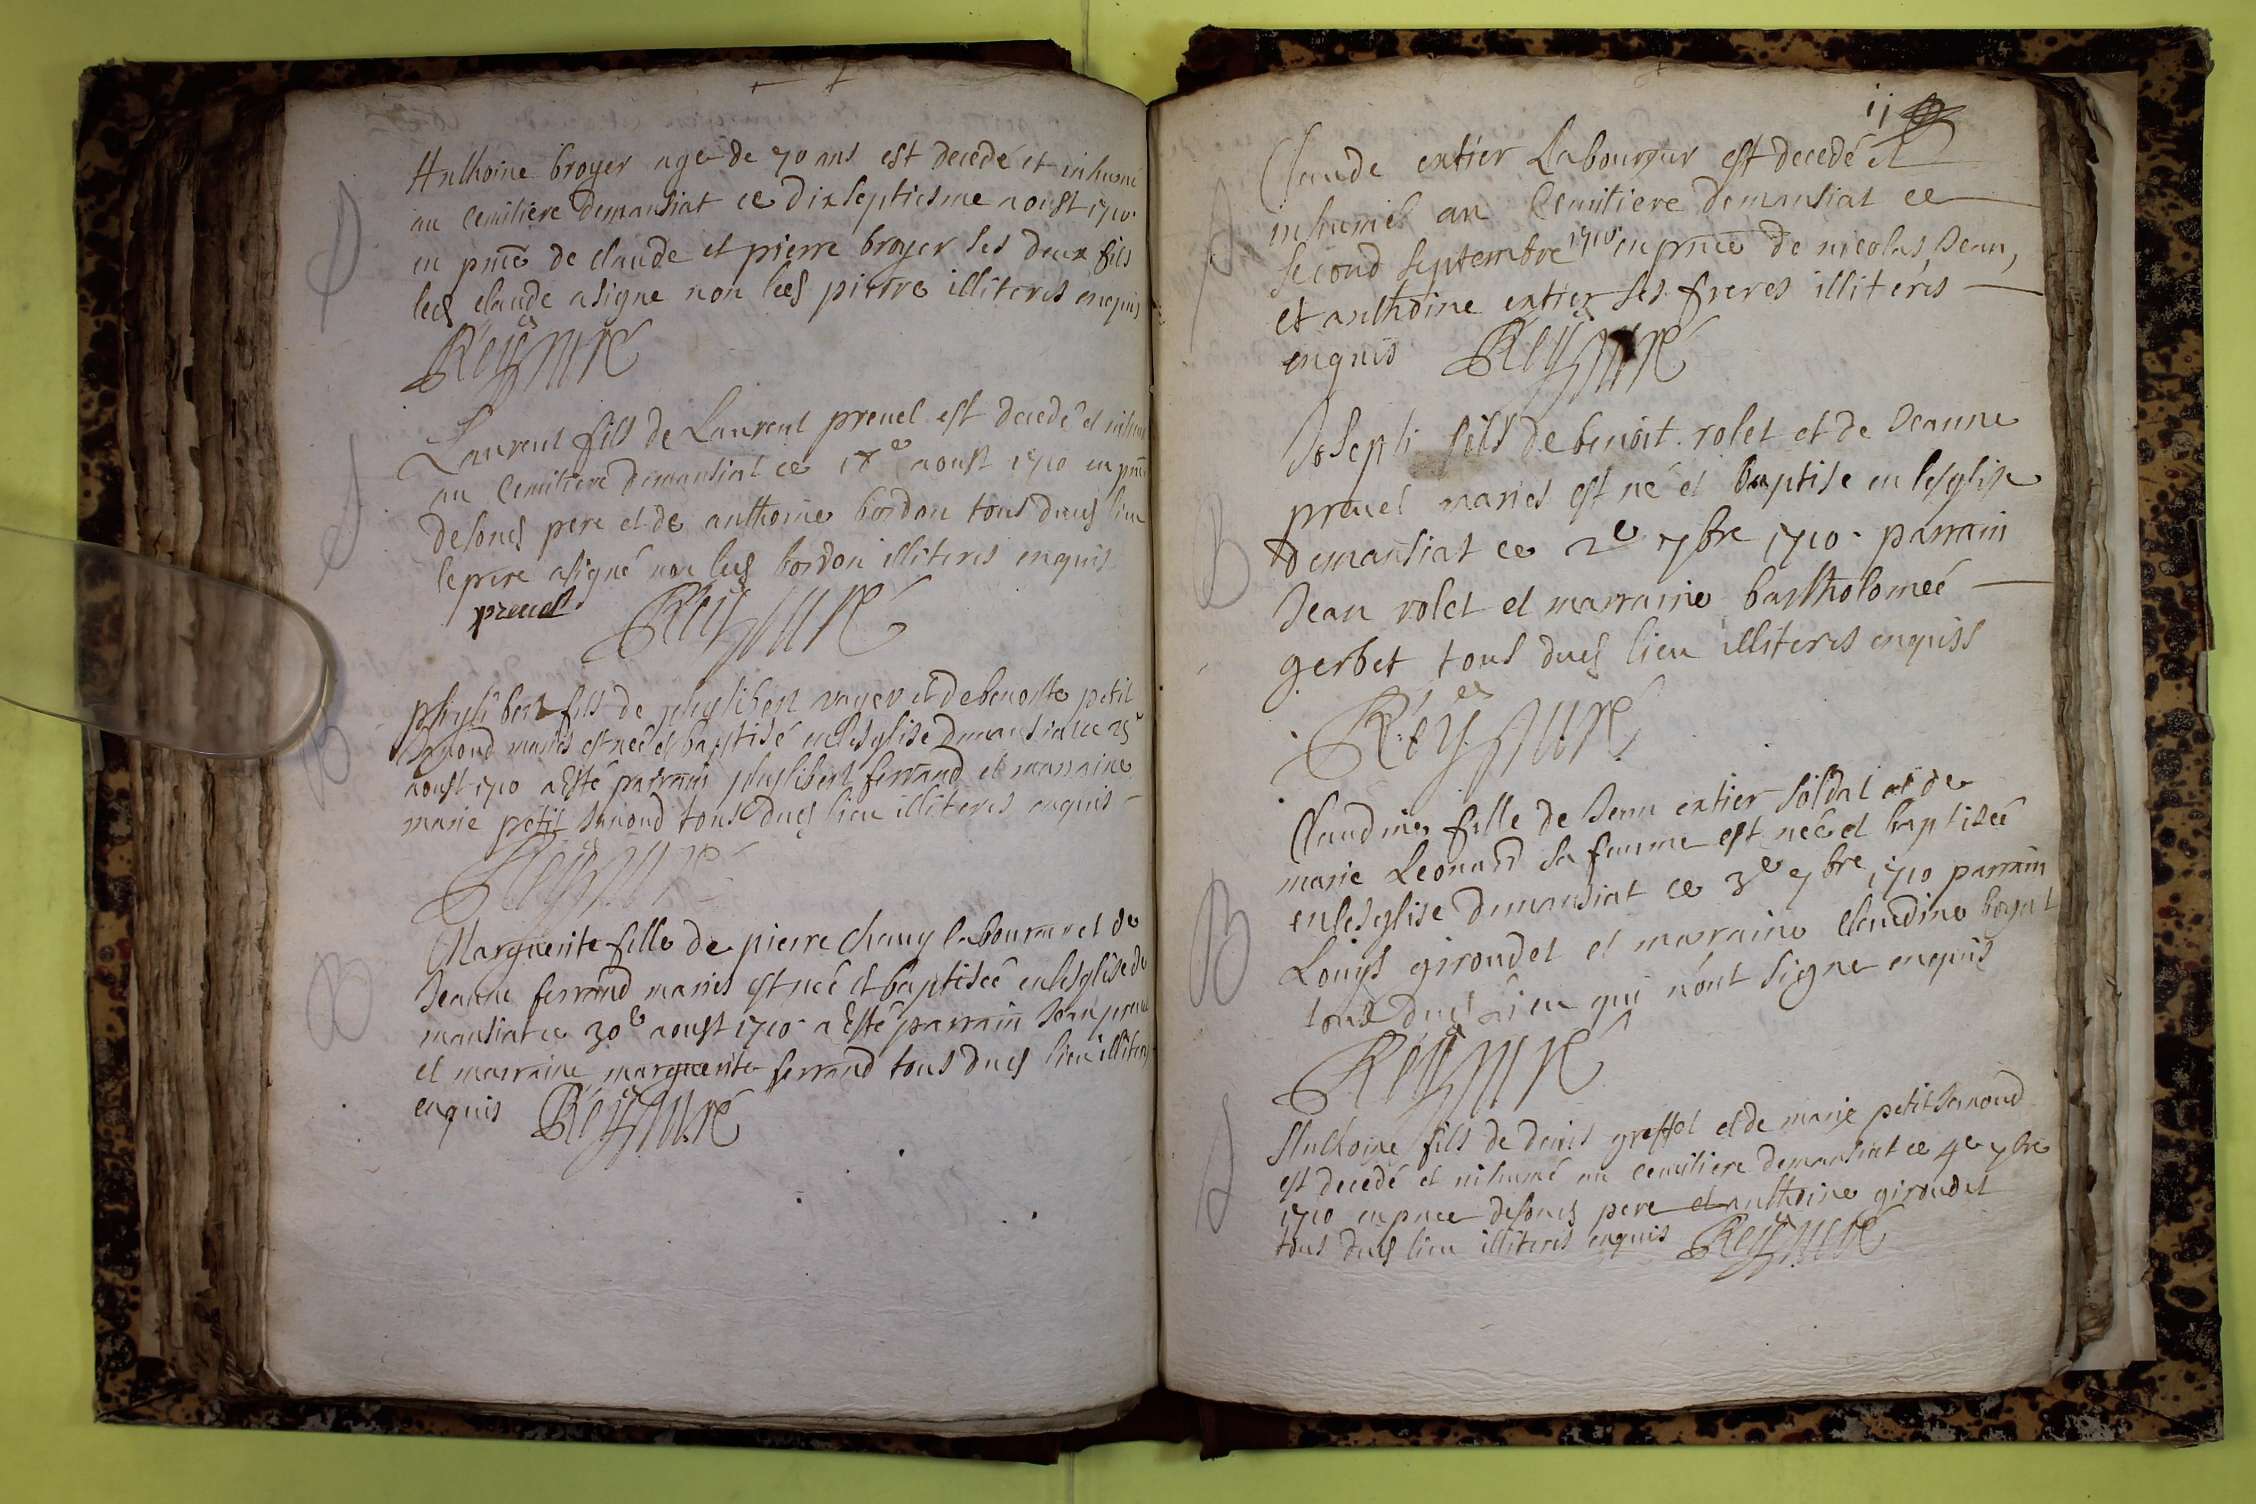 Anthoine broyer agé de 70 ans est decedé et inhumé
au Cemitiere demansiat ce dixseptiesme aoust 1710
en pnce de claude et pierre broyer ses deux fils
led claude a signe non led pierre illiteres enquis
Rey curé
D
Laurent fils de Laurent preuel est decedé et inhumé
au Cemitiere demansiat ce 18e aoust 1710 en pnce
desond pere et de anthoine bordon tous dud lieu
le pere a signé non led bordon illiteres enquis
preuel Rey curé
B
phylibert fils de phylibert et de benoiste petit
maries est né et baptisé en lesglise demansiat ce 25e
aoust 1710 a esté parrain phylibert ferrand et marraine
marie petit tous dud lieu illiteres enquis
Rey curé
B
Marguerite fille de pierre chany laboureur et de
Jeanne ferrand maries est née et baptiseé en lesglise de
mansiat ce 30e aoust 1710 a esté parrain Jean preuel
et marraine marguerite ferrand tous dud lieu illiteres
enquis Rey curé
11
Claude extier Laboureur est decedé et
inhumé au Cemitiere demansiat ce
second septembre 1710 en pnce de nicolas, Jean,
et anthoine extier ses freres illiterés
enquis Rey curé
B
Joseph fils de benoit rolet et de Jeanne
preuel maries est né et baptise en lesglise
demansiat ce 2e 7bre 1710 parrain
Jean rolet et marraine bartholomeé
gerbet tous dud lieu illiteres enquiss
Rey curé
B
Claudine fille de Jean extier soldat et de
marie Leonard sa femme est neé et baptiseé
en lesglise demansiat ce 3e 7bre 1710 parrain
Louys girondet et maraine Claudine boyat
tous dud lieu qui nont signe enquis
Rey curé
Anthoine fils de denis greffet et de marie petit
est decedé et inhumé au cemitiere demansiat ce 4e 7bre
1710 en pnce desond pere et anthoine girondet
tous dud lieu illiteres enquis Rey curé